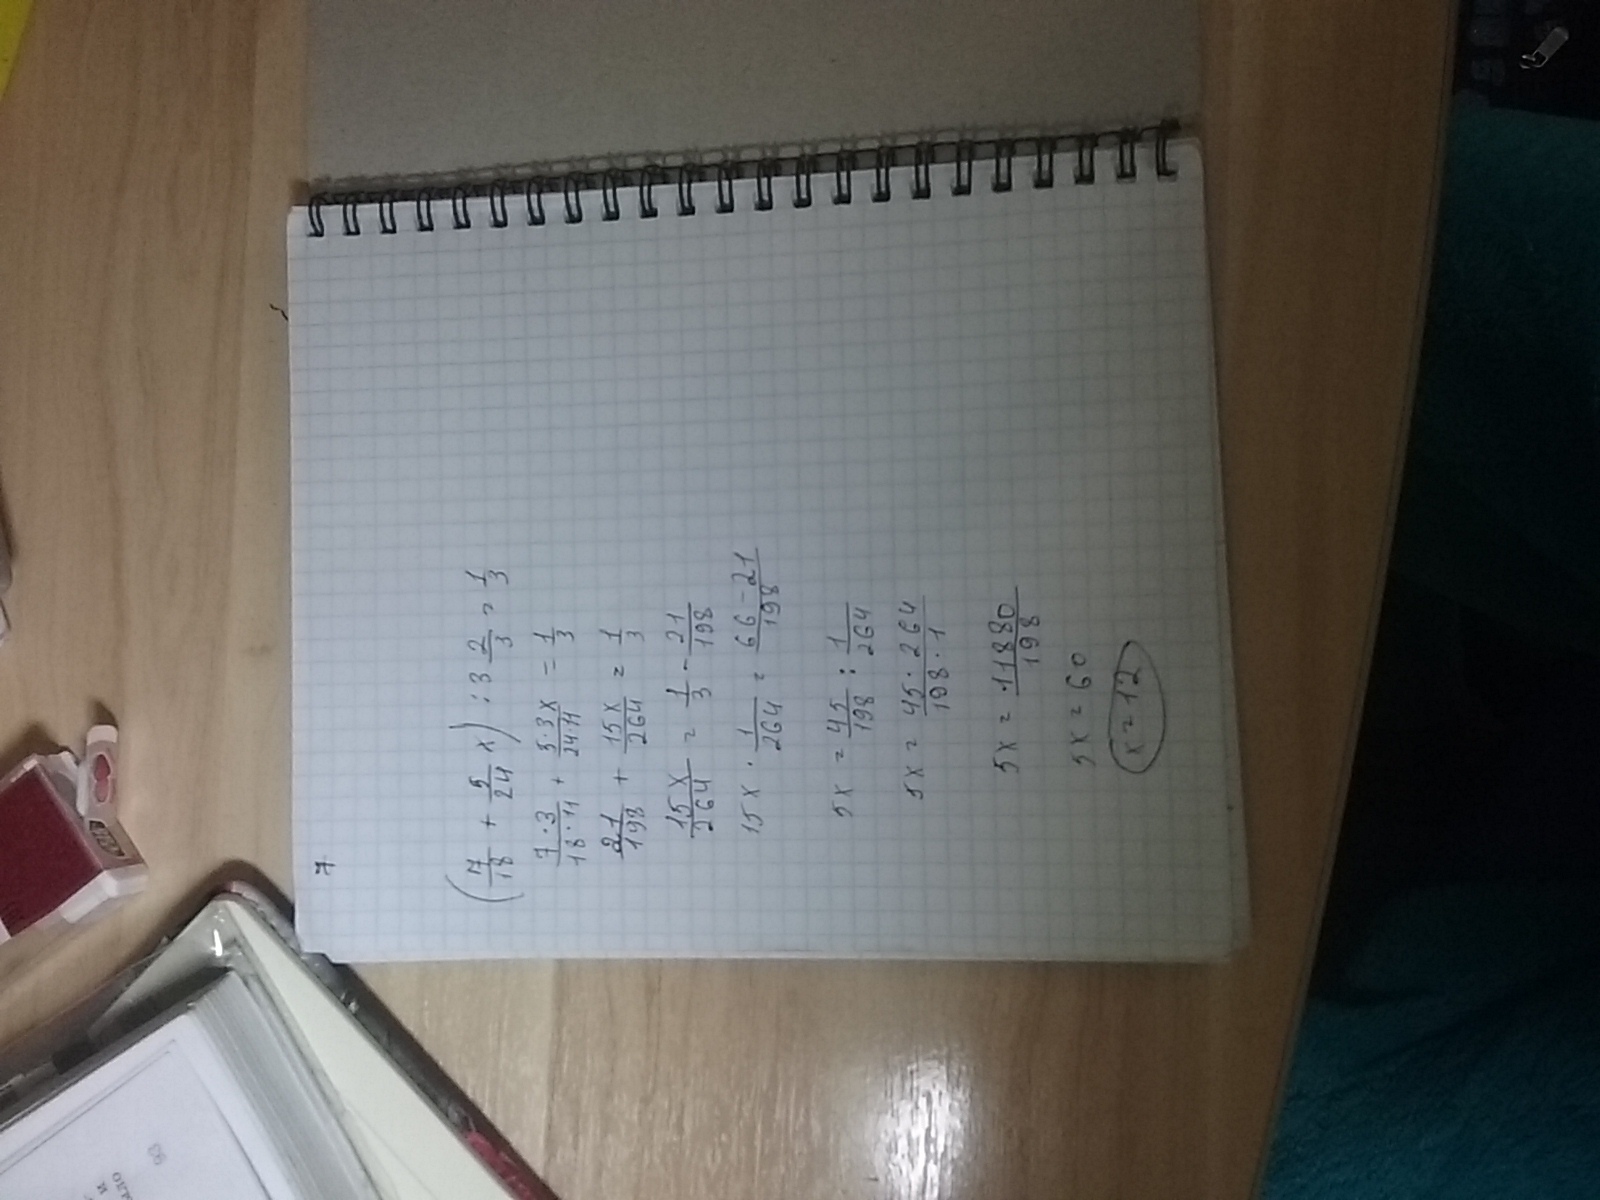 7
(7/18 + 5/24 x) : 3 2/3 = 1/3
7·3/18·11 + 5·3x/24·11 = 1/3
21/198 + 15x/264 = 1/3
15x/264 = 1/3 - 21/198
15x · 1/264 = 66-21/198
5x = 45/198 : 1/264
5x = 45·264/198·1
5x = 11880/198
5x = 60
x = 12
93